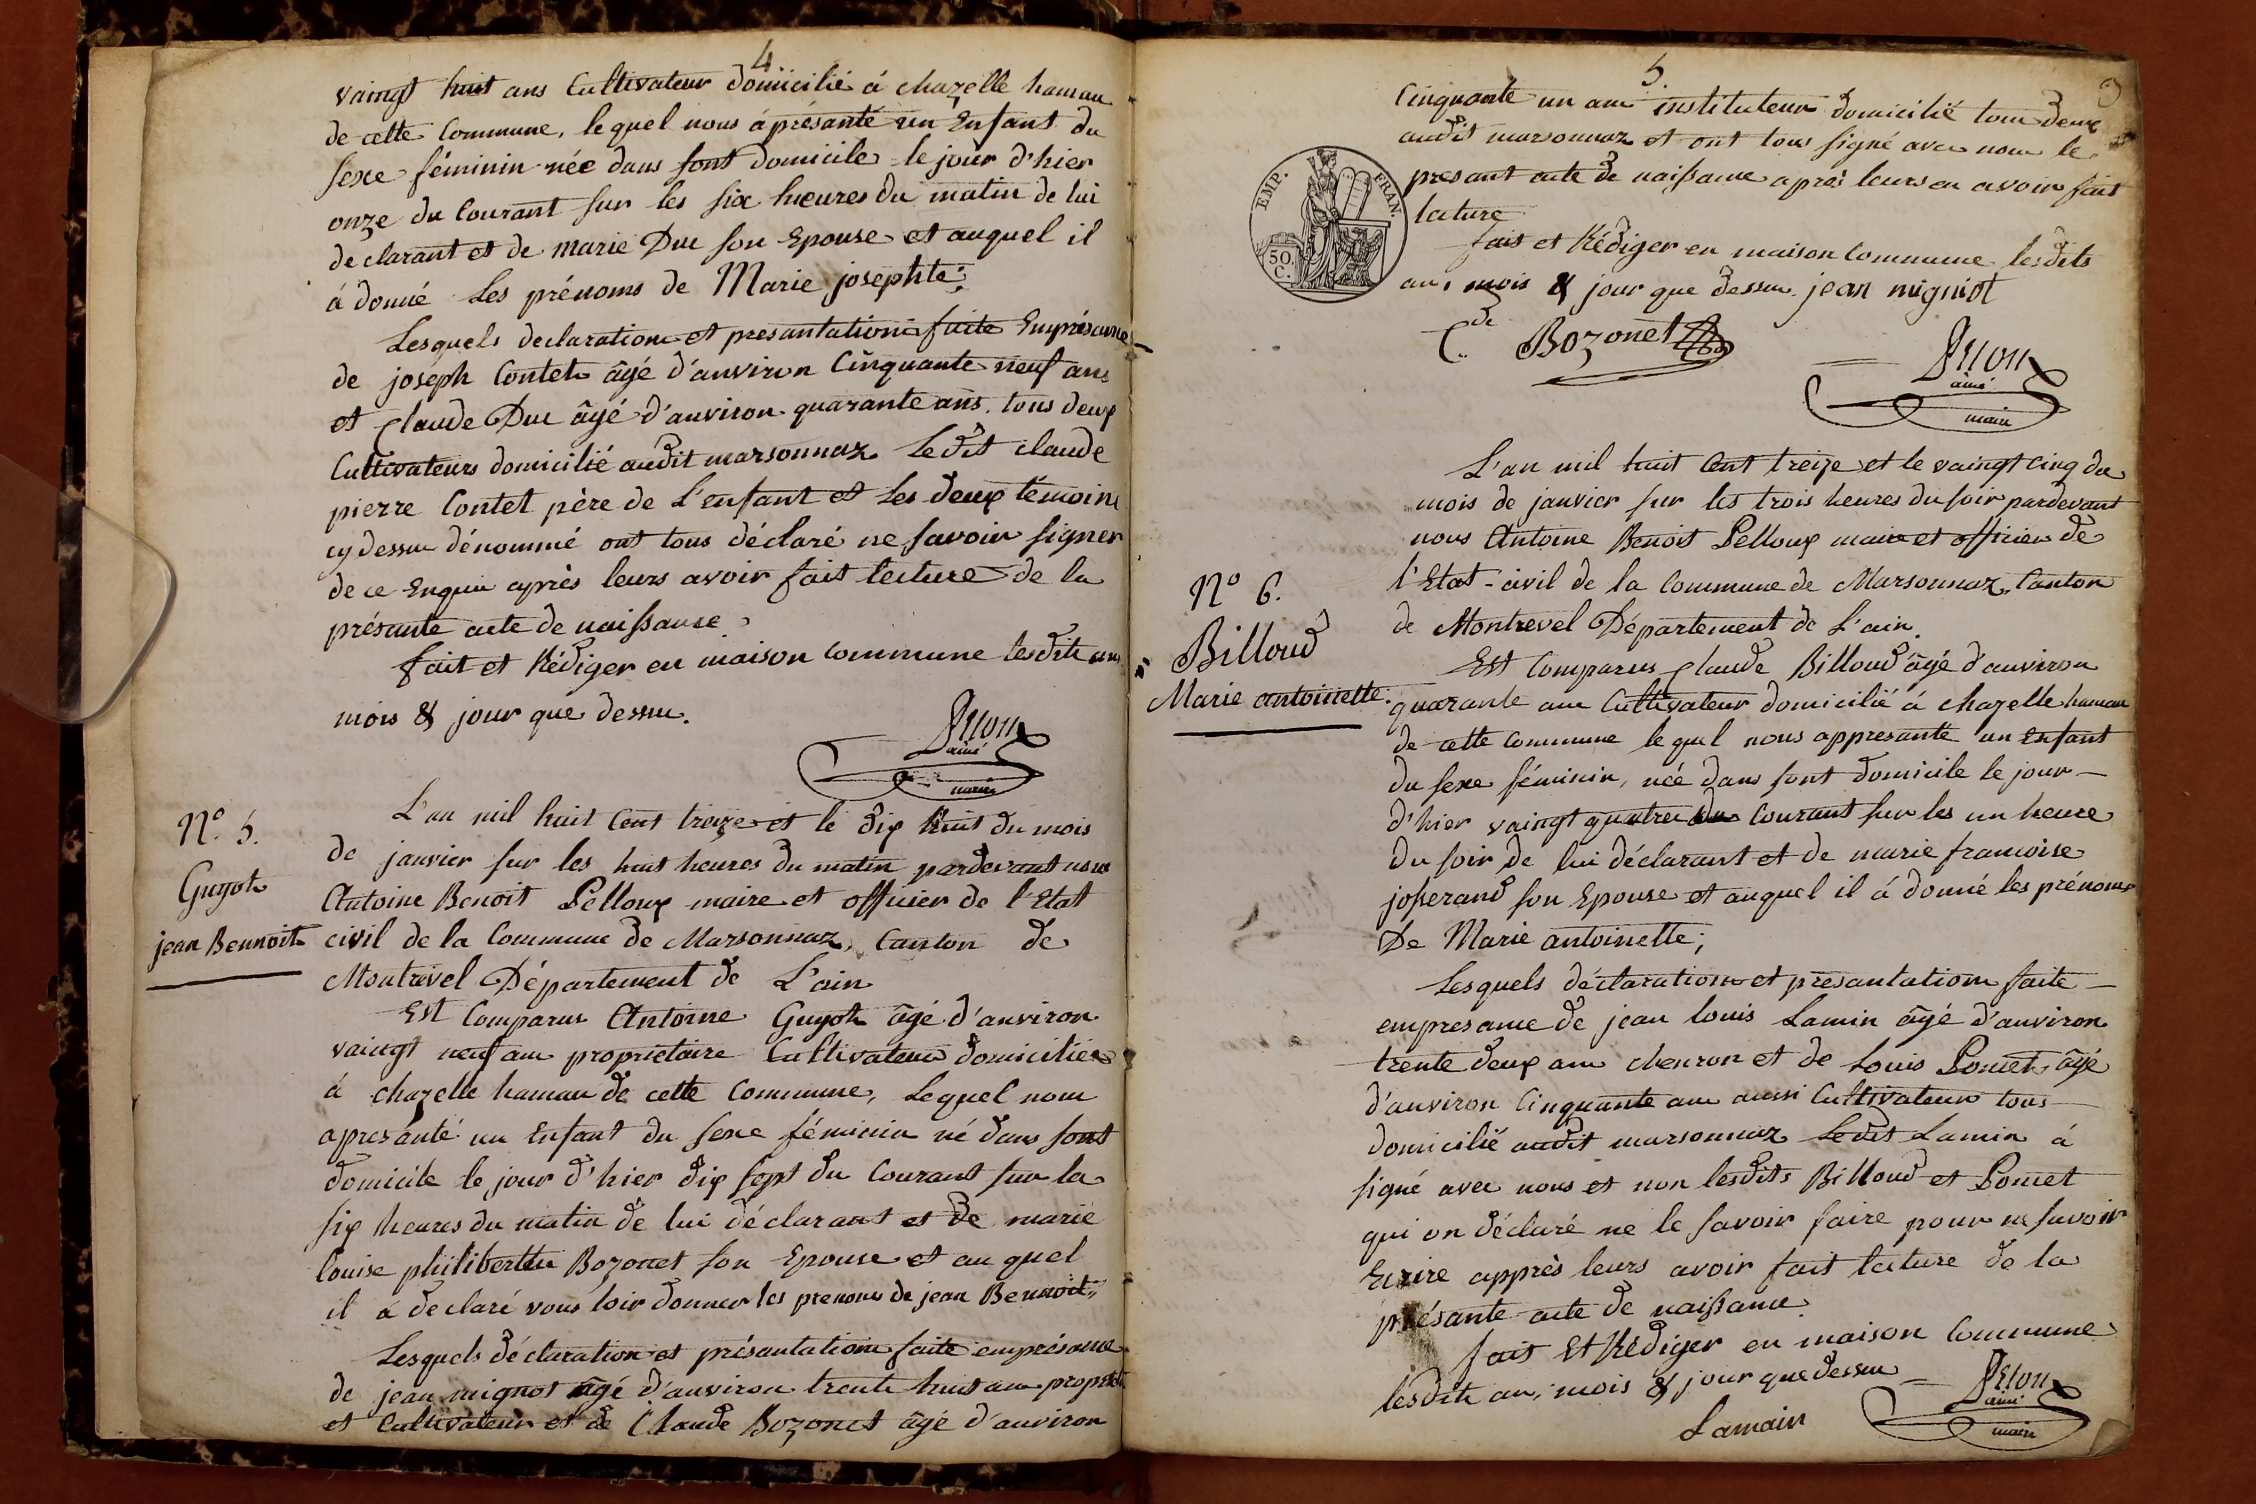 4
vaingt huit ans Cultivateur domicilié á chazelle hamau
de cette Commune, lequel nous á présanté un Enfant du
sexe féminin née dans sont domicile le jour d'hier
onze du Courant sur les six heures du matin de lui
declarant et de marie Duc son Epouse et auquel il
á donné Les prénoms de Marie josephte;
Lesquels declaration et presantation faite Emprésance
de joseph Contet âgé d'anviron Cinquante neuf ans
et Claude Duc âgé d'anviron quarante ans. tous deux
Cultivateurs domicilié audit marsonnaz Ledit claude
pierre Contet père de L'enfant et Les deux témoins
cy dessu dénommé ont tous déclaré ne savoir signer
de ce Enquis après leurs avoir fait lecture de la
présante acte de naissance.
fait et Rédiger en maison Commune lesdits an
mois & jour que dessu.
ainé
maire
N.º 5.
Guyot
jean Bennoit
L'an mil huit Cent treize et le dix huit du mois
de janvier sur les huit heures du matin pardevant nous
Antoine Benoit Pelloux maire et officier de l'Etat
civil de la Commune de Marsonnaz, Canton de
Montrevel Département de L'ain
Est Comparus Antoine Guyot âgé d'anviron
vaingt neuf ans proprietaire Cultivateur domicilié
á chazelle hamau de cette Commune, Lequel nous
apresánté un Enfant du sexe féminin né dans sont
domicile le jour d'hier dix sept du Courant sur la
six heures du matin de lui déclarant et de marie
louise philiberte Bozonet son Epouse et au quel
il á declaré vous loir donner les prenoms de jean Bennoit;
Lesquels déclaration et présantation faite emprésance
de jean mignot âgé d'anviron trente huit ans propriet
et Cultivateur et de Claude Bozonet âgé d'anviron
5.
3
Cinquante un ans instituteur domicilié tous deux
audit marsonnaz et ont tous signé avec nous le
presant acte de naissance après leurs en avoir fait
lecture
EMP. FRAN.
50. C.
fait et Rédiger en maison Commune lesdits
an, mois & jour que dessu. jean migniot
C.de Bozonet
ainé
maire
N.º 6.
Billoud
Marie antoinette.
L'an mil huit Cent treize et le vaingt cinq du
mois de janvier sur les trois heures du soir pardevant
nous Antoine Benoit Pelloux maire et officier de
l'Etat-civil de la Commune de Marsonnaz, Canton
de Montrevel Département de L'ain.
Est Comparus Claude Billoud âgé d'anviron
quarante ans Cultivateur domicilié á chazelle hamau
de cette Commune lequel nous appresanté un Enfant
du sexe féminin, née dans sont domicile le jour
d'hier vaingt quatre du Courant sur les un heure
du soir de lui déclarant et de marie francoise
josserand son Epouse et auquel il á donné les prénoms
De Marie antoinette;
Lesquels déclaration et présantation faite
empresance de jean louis Lamin âgé d'anviron
trente deux ans charron et de Louis Pomet âgé
d'anviron Cinquante ans aussi Cultivateur tous
domicilié audit marsonnaz Ledit Lamin á
signé avec nous et non lesdits Billoud et Pomet
qui on déclaré ne le savoir faire pour ne savoir
Ecrire apprès leurs avoir fait lecture de la
présante acte de naissance.
fait Et Rédiger en maison Commune
lesdits an, mois & jour que dessu
Lamain
ainé
maire